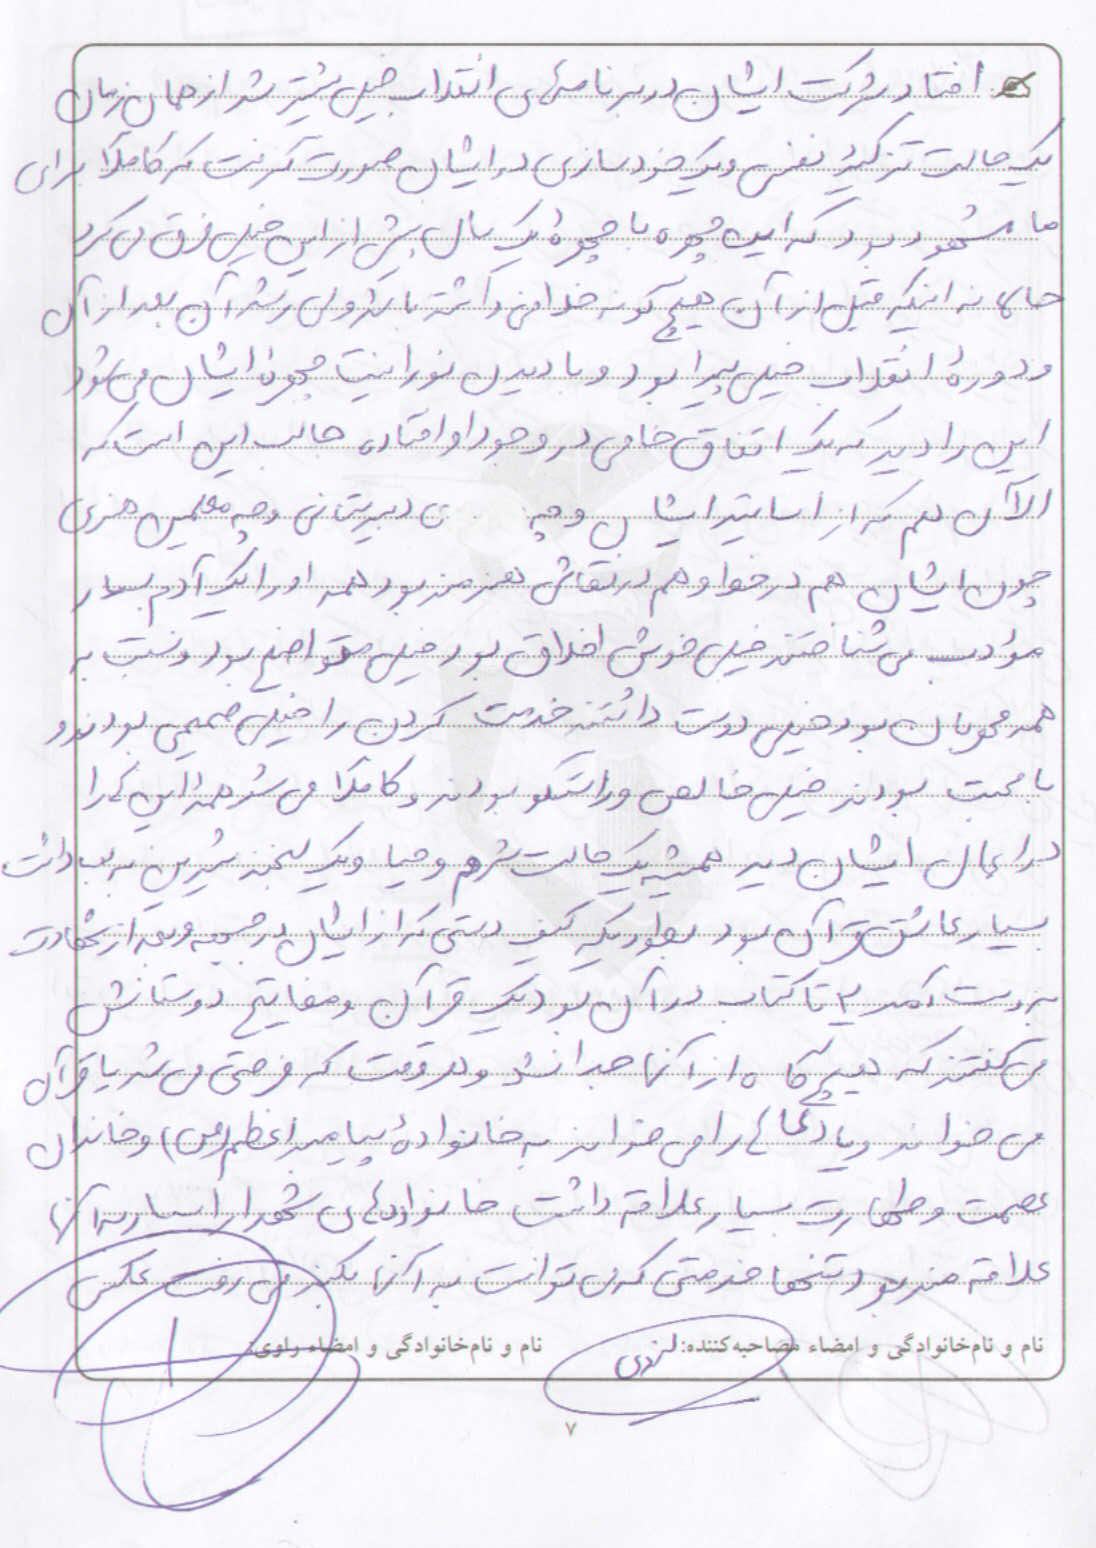 افتاد شرکت ایشان در برنامه‌های انقلاب خیلی بیشتر شد از همان زمان
یک حالت تزکیهٔ نفس و یک خودسازی در ایشان صورت گرفت که کاملاً برای
ما مشهود بود که این چهره با چهرهٔ یک سال پیش از این خیلی فرق می‌کرد
حالا نه اینکه قبل از آن هیچ گونه خلافی داشته باشد ولی رشد آن بعد از آن
و دورهٔ انقلاب خیلی پیدا بود و با دیدن نورانیت چهرهٔ ایشان می‌شود
این را دید که یک اتفاق خاصی در وجود او افتاده جالب این است که
الآن هم که از اساتید ایشان و چه ی دبیرستانی و چه معلمین هنری
چون ایشان هم در خط و هم در نقاشی هنرمند بود همه او را یک آدم بسیار
مؤدب می‌شناختند خیلی خوش اخلاق بود خیلی متواضع بود و نسبت به
همه مهربان بود خیلی دوست داشتند خدمت کردن را خیلی صمیمی بودند و
با محبت بودند خیلی خالص و راستگو بودند و کاملاً می‌شد همهٔ این‌ها را
در اعمال ایشان دید همیشه یک حالت شرم و حیا و یک لبخند شیرین به لب داشت
بسیار عاشق قرآن بود بطوریکه کیف دستی که از ایشان در جبهه و بعد از شهادت
به دست آمد ۲ تا کتاب در آن بود یک قرآن و مفاتیح دوستانش
می‌گفتند که هیچ گاه از آنها جدا نشد و هر وقت که فرصتی می‌شد یا قرآن
می‌خواند و یا دعاها را می‌خواند به خانوادهٔ پیامبر اعظم (ص) و خاندان
عصمت و طهارت بسیار علاقه داشت خانواده‌های شهدا را بسیار به آنها
علاقه مند بود تنها خدمتی که می‌توانست به آنها بکند می‌رفت عکس
نام و نام‌خانوادگی و امضاء مصاحبه‌کننده: نام و نام‌خانوادگی و امضاء راوی:
۷